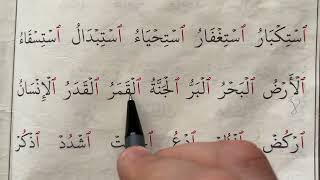 ٱسْتِكْبَارُ ٱسْتِغْفَارُ ٱسْتِحْيَاءُ ٱسْتِبْدَالُ ٱسْتِسْقَاءُ
ٱلْأَرْضُ ٱلْبَحْرُ ٱلْبَرُّ ٱلْجَنَّةُ ٱلْقَمَرُ ٱلْقَدَرُ ٱلْإِنْسَانُ
ٱرْكُضْ ٱدْعُ ٱشْدُدْ ٱذْكُرْ